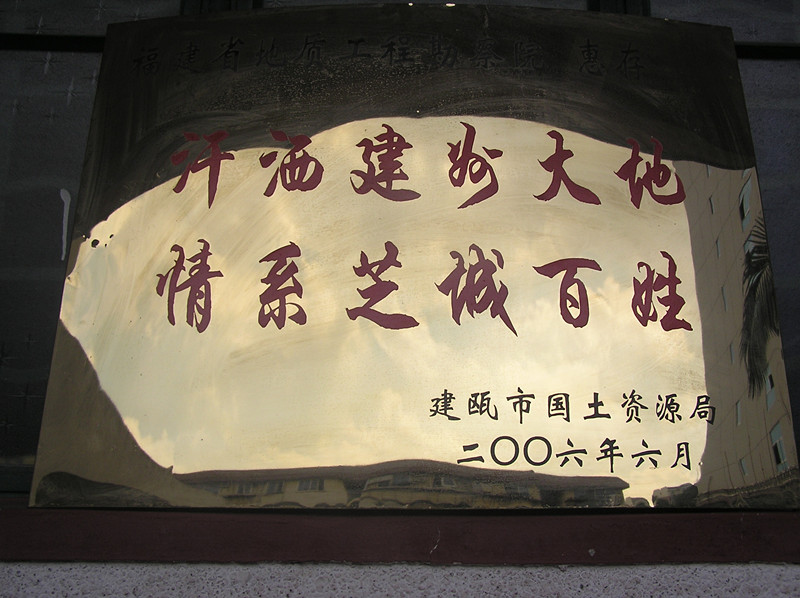 福建省地质工程勘察院 惠存
汗洒建州大地
情系芝城百姓
建瓯市国土资源局
二〇〇六年六月